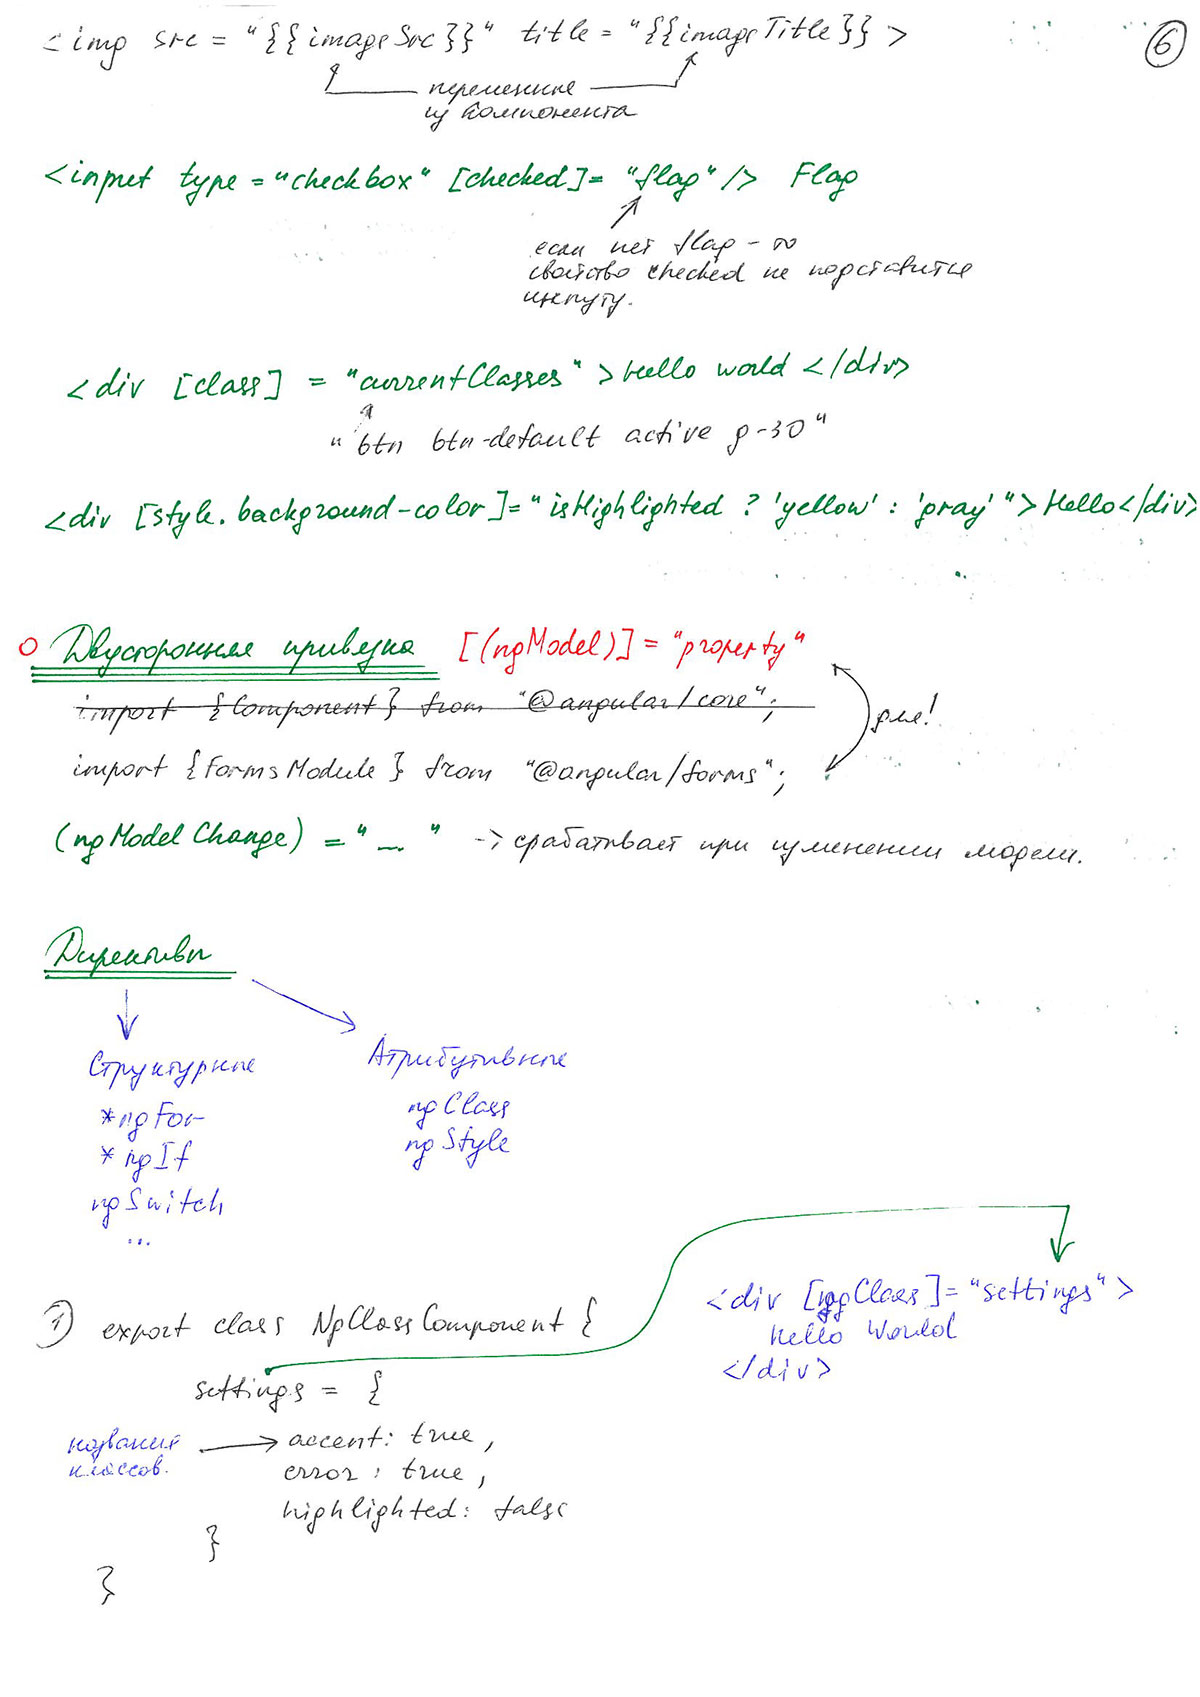 6
<img src = "{{imageSrc}}" title = "{{imageTitle}}>
переменные
из компонента
<input type = "checkbox" [checked] = "flag" /> Flag
если нет flag - то
свойство checked не подставится
инпуту.
<div [class] = "currentClasses" > Hello world </div>
"btn btn-default active g-30"
<div [style.background-color]=" isHighlighted ? 'yellow' : 'gray' "> Hello </div>
Двусторонняя привязка [(ngModel)] = "property"
import {Component} from "@angular/core";
import {FormsModule} from "@angular/forms";
для!
(ngModelChange) = "..." -> срабатывает при изменении модели.
Директивы
Структурные
*ngFor
*ngIf
ngSwitch
...
Атрибутивные
ngClass
ngStyle
1) export class NgClassComponent {
settings = {
названия
классов.
accent: true,
error: true,
highlighted: false
}
}
<div [ngClass] = "settings">
Hello World
</div>